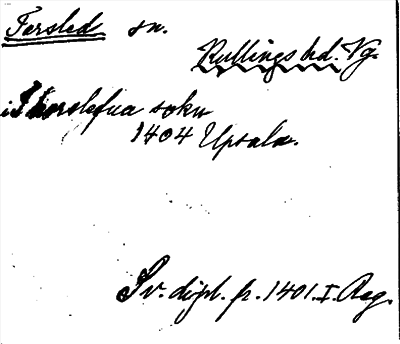 Forsled sn.
Kullings hd. Vg.
i Thorslefua sokn
1404 Upsala.
Sv. dipl. fr. 1401. I. Reg.